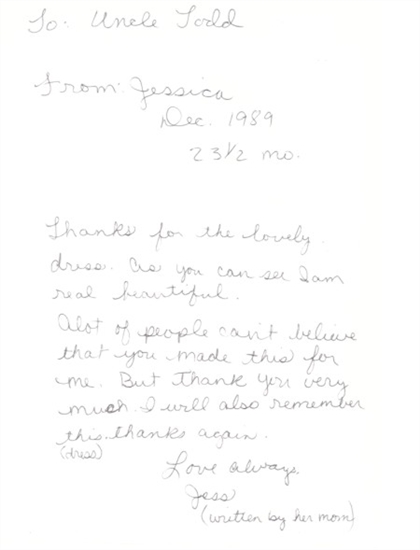 To: Uncle Todd
From: Jessica
Dec. 1989
23 1/2 mo.
Thanks for the lovely
dress. As you can see I am
real beautiful.
Alot of people can't believe
that you made this for
me. But Thank you very
much. I will also remember
this. thanks again.
(dress)
Love always,
Jess
(written by her mom)